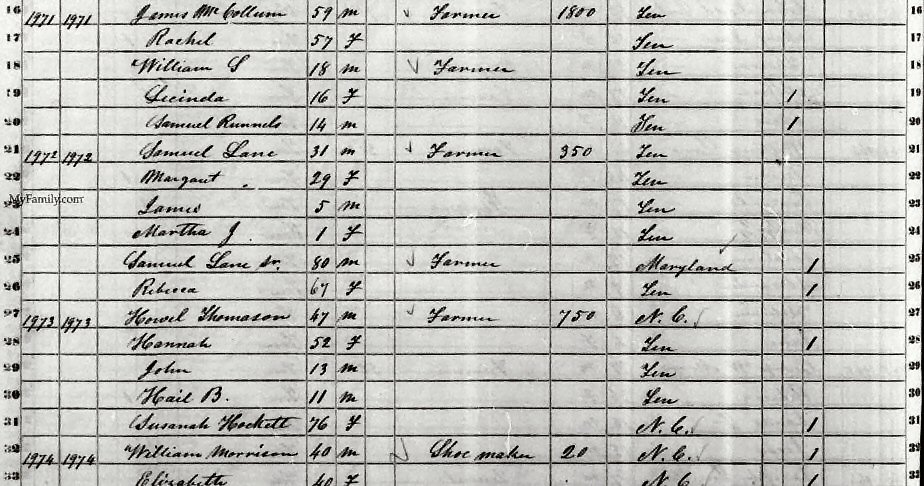 16 1971 1971 James McCollum 59 m Farmer 1800 Ten 16
17 Rachel 57 F Ten 17
18 William S 18 m Farmer Ten 18
19 Lucinda 16 F Ten 1 19
20 Samuel Runnels 14 m Ten 1 20
21 1972 1972 Samuel Lane 31 m Farmer 350 Ten 21
22 Margaut 29 F Ten 22
MyFamily.com
23 James 5 m Ten 23
24 Martha J 1 F Ten 24
25 Samuel Lane Sr. 80 m Farmer Maryland 1 25
26 Rebecca 67 F Ten 1 26
27 1973 1973 Howel Thomason 47 m Farmer 750 N. C. 27
28 Hannah 52 F Ten 1 28
29 John 13 m Ten 29
30 Hail B. 11 m Ten 30
31 Susanah Hockett 76 F N. C. 1 31
32 1974 1974 William Morrison 40 m Shoe maker 20 N. C. 1 32
33 Elizabeth 40 F N. C 1 33